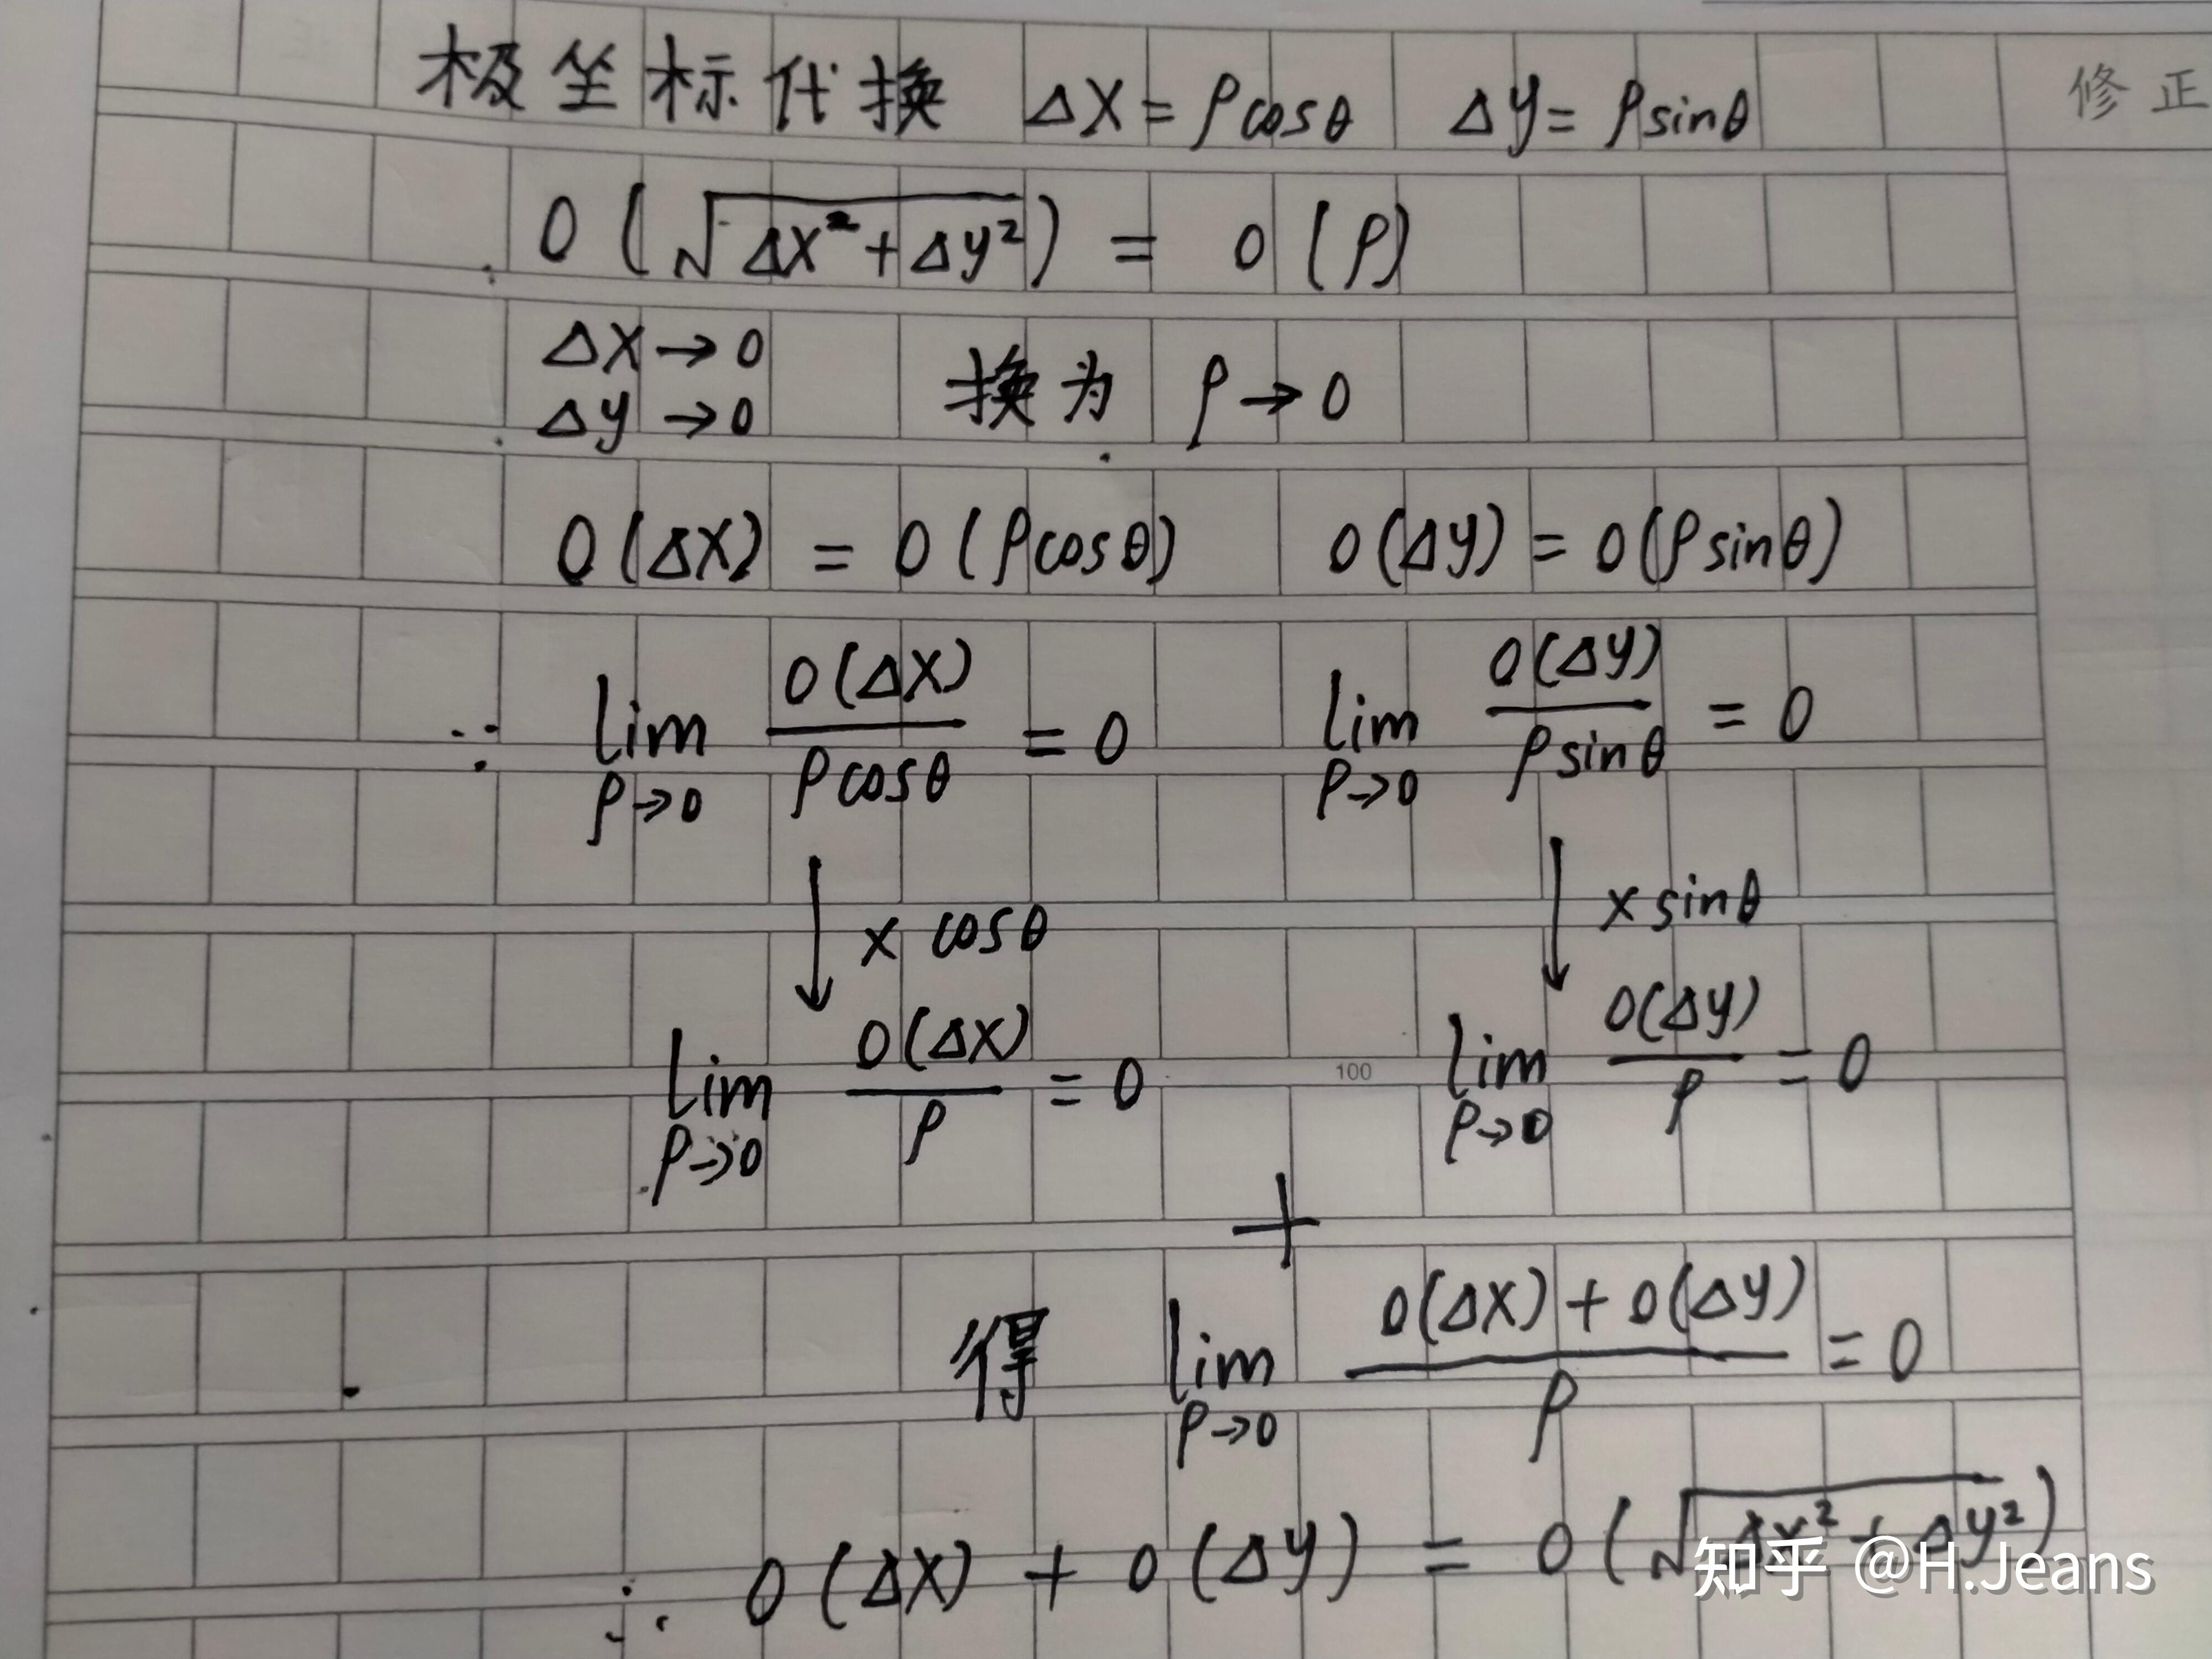 极坐标代换 ΔX = ρcosθ Δy = ρsinθ
修正
o (√(ΔX²+Δy²)) = o (ρ)
ΔX→0
Δy→0 换为 ρ→0
o(ΔX) = o(ρcosθ) o(Δy) = o(ρsinθ)
∵ lim ρ→0 o(ΔX)/ρcosθ = 0 lim ρ→0 o(Δy)/ρsinθ = 0
↓ × cosθ ↓ × sinθ
lim ρ→0 o(ΔX)/ρ = 0 lim ρ→0 o(Δy)/ρ = 0
100
+
得 lim ρ→0 (o(ΔX) + o(Δy))/ρ = 0
∴ o(ΔX) + o(Δy) = o(√(Δx²+Δy²))
知乎 @H.Jeans